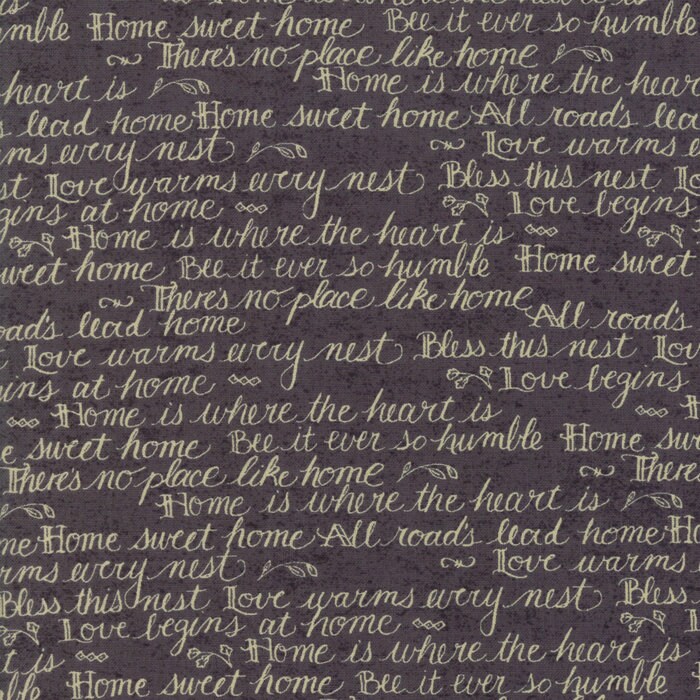 Home sweet home Bee it ever so humble
There's no place like home
heart is Home is where the hear
s lead home Home sweet home All road's lea
ms every nest Love warms e
st Love warms every nest Bless this nest Lo
gins at home Love begins
Home is where the heart is
weet home Bee it ever so humble Home sweet
There's no place like home
oad's lead home All road's
Love warms every nest Bless this nest Lov
ins at home Love begins
Home is where the heart is H
e sweet home Bee it ever so humble Home sw
There's no place like home There
Home is where the heart is
me Home sweet home All road's lead home H
rms every nest Love warms
Bless this nest Love warms every nest Bless
Love begins at home
t is Home is where the heart is
Home sweet home Bee it ever so humble